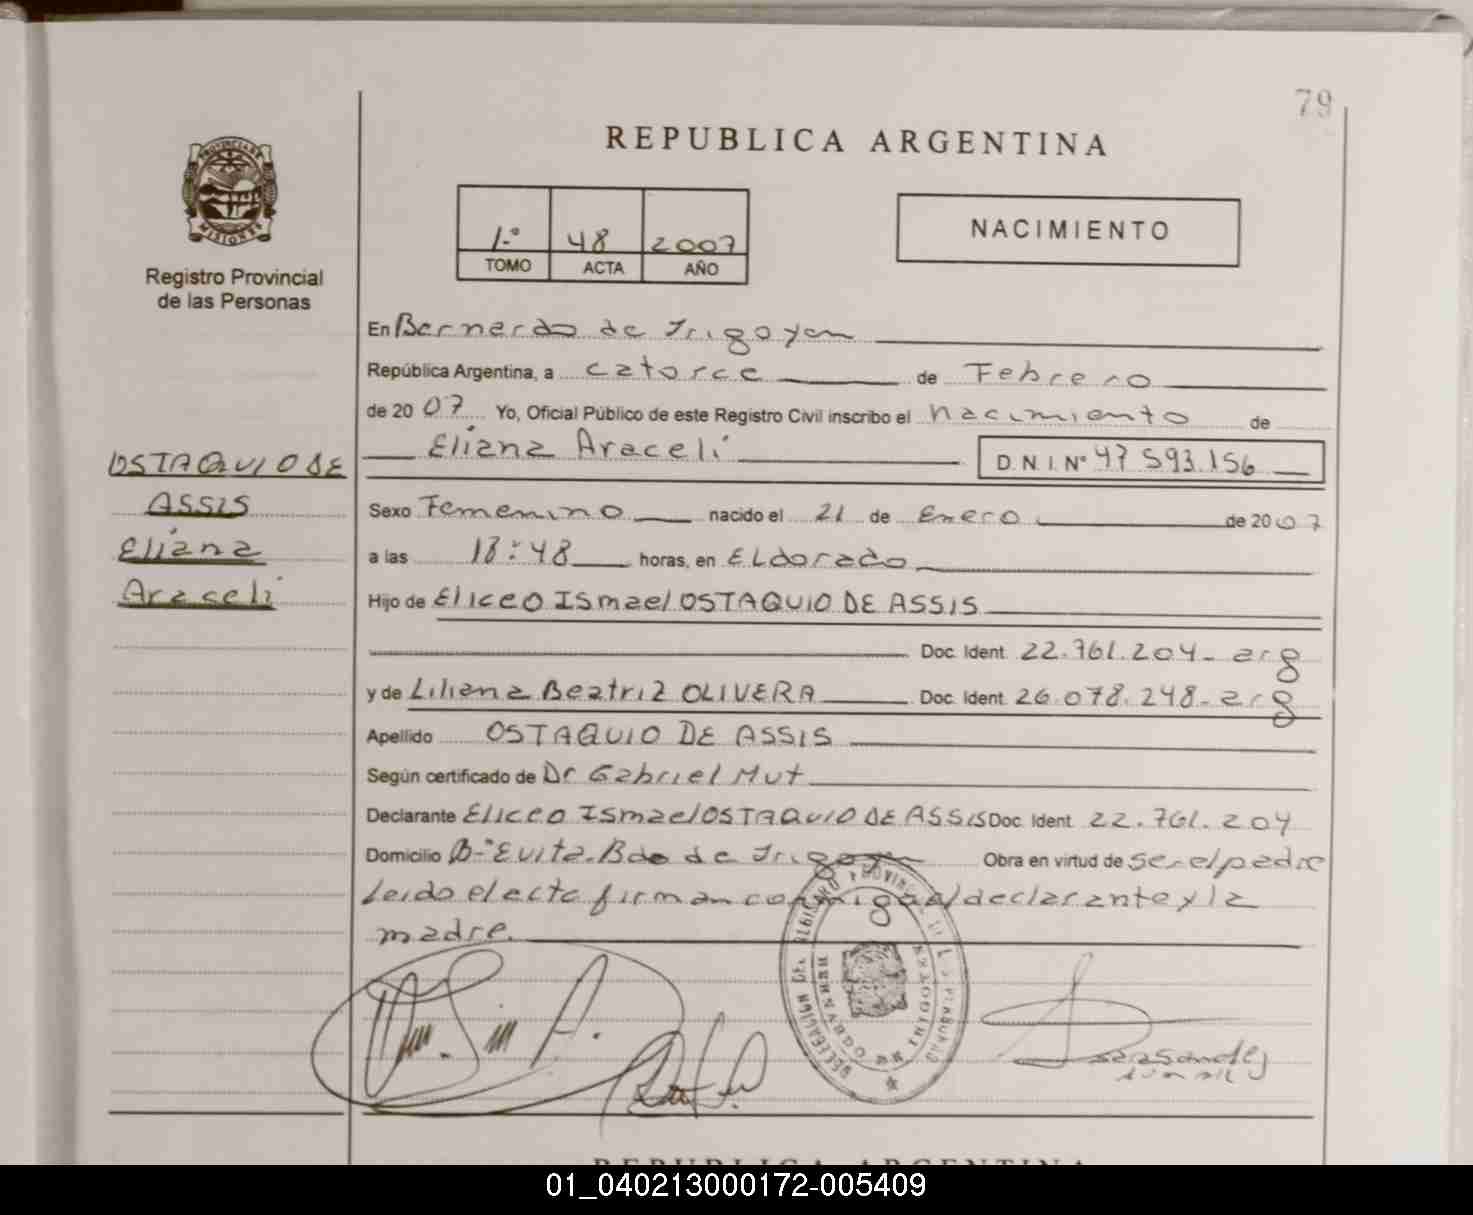 79
REPUBLICA ARGENTINA
PROVINCIA DE
MISIONES
Registro Provincial
de las Personas
1.º 48 2007
TOMO ACTA AÑO
NACIMIENTO
En Bernardo de Irigoyen
República Argentina, a catorce de Febrero
de 20 07 Yo, Oficial Público de este Registro Civil inscribo el nacimiento de
Eliana Araceli D.N.I. Nº 47 593.156
OSTAQUIO DE
ASSIS
Eliana
Araceli
Sexo Femenino nacido el 21 de Enero de 2007
a las 18:48 horas, en ELdorado
Hijo de Eliceo ISmael OSTAQUIO DE ASSIS
Doc. Ident. 22.761.204- arg
y de Liliana Beatriz OLIVERA Doc. Ident. 26.078.248- arg
Apellido OSTAQUIO DE ASSIS
Según certificado de Dr Gabriel Mut
Declarante Eliceo ISmael OSTAQUIO DE ASSIS Doc. Ident. 22.761.204
Domicilio Bº Evita-Bdo de Irigoyen Obra en virtud de ser el padre
Leido el acta firman conmigo el declarante y la
madre.
DELEGACION DEL REGISTRO PROVINCIAL DE L
BERNARDO
IRIGOYEN
REPUBLICA ARGENTINA
01_040213000172-005409